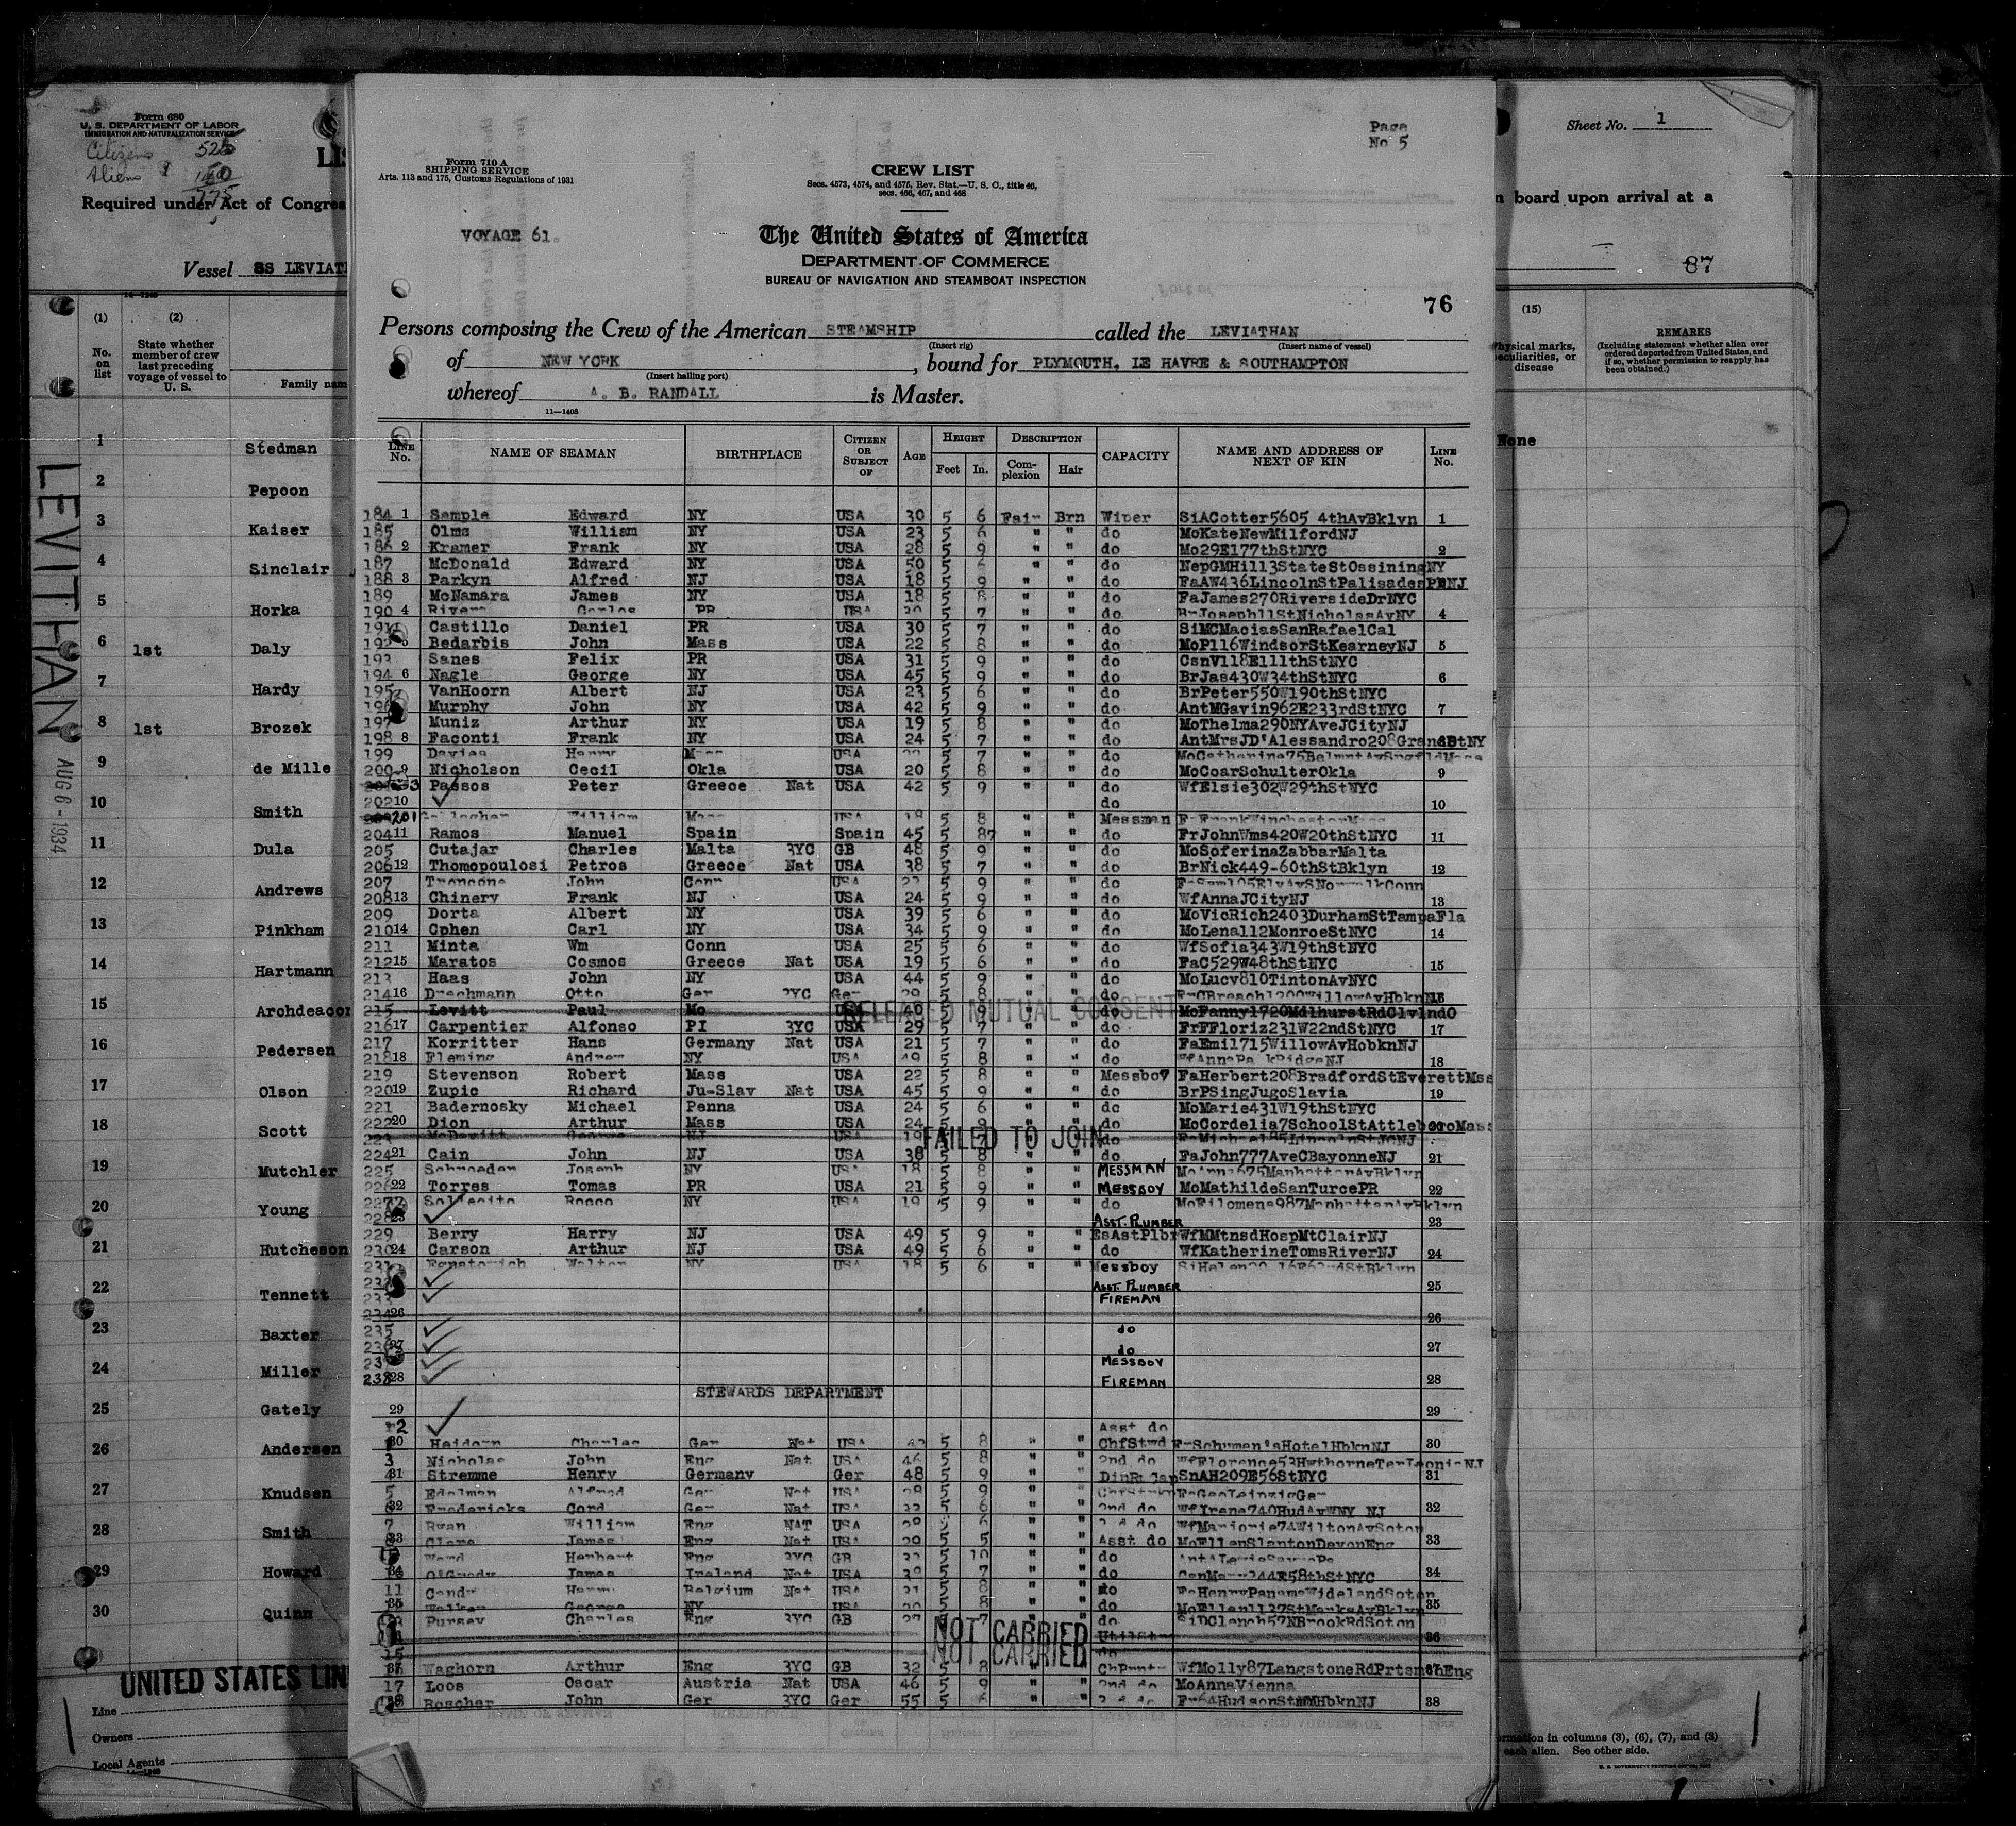 Form 680
U. S. DEPARTMENT OF LABOR
IMMIGRATION AND NATURALIZATION SERVICE
Citizens 525
Aliens
775
Required under Act of Congres
Vessel SS LEVIAT
(1) (2)
No. on list
State whether member of crew last preceding voyage of vessel to U. S.
Family nam
1 Stedman
2 Pepoon
3 Kaiser
4 Sinclair
5 Horka
6 1st Daly
7 Hardy
8 1st Brozek
9 de Mille
10 Smith
11 Dula
12 Andrews
13 Pinkham
14 Hartmann
15 Archdeacon
16 Pedersen
17 Olson
18 Scott
19 Mutchler
20 Young
21 Hutcheson
22 Tennett
23 Baxter
24 Miller
25 Gately
26 Andersen
27 Knudsen
28 Smith
29 Howard
30 Quinn
LEVITHAN
AUG 6 - 1934
UNITED STATES LIN
Line
Owners
Local Agents
Page
No 5
Form 710 A
SHIPPING SERVICE
Arts. 113 and 175, Customs Regulations of 1931
CREW LIST
Secs. 4573, 4574, and 4575, Rev. Stat.—U. S. C., title 46,
secs. 466, 467, and 468
VOYAGE 61.
The United States of America
DEPARTMENT OF COMMERCE
BUREAU OF NAVIGATION AND STEAMBOAT INSPECTION
76
Persons composing the Crew of the American STEAMSHIP called the LEVIATHAN
(Insert rig) (Insert name of vessel)
of NEW YORK, bound for PLYMOUTH, LE HAVRE & SOUTHAMPTON
(Insert hailing port)
whereof A. B. RANDALL is Master.
11—1408
LINE No. NAME OF SEAMAN BIRTHPLACE CITIZEN OR SUBJECT OF AGE HEIGHT Feet In. DESCRIPTION Complexion Hair CAPACITY NAME AND ADDRESS OF NEXT OF KIN LINE No.
184 1 Sample Edward NY USA 30 5 6 Fair Brn Wiper SiACotter5605 4thAvBklyn 1
185 Olms William NY USA 23 5 6 " " do MoKateNewMilfordNJ
186 2 Kramer Frank NY USA 28 5 9 " " do Mo29E177thStNYC 2
187 McDonald Edward NY USA 50 5 " " do NepGMHill3StateStOssiningNY
188 3 Parkyn Alfred NJ USA 18 5 9 " " do FaAW436LincolnStPalisadesPkNJ
189 McNamara James NY USA 18 5 8 " " do FaJames270RiversideDrNYC
190 4 Rivera Carlos PR USA 5 7 " " do BrJoseph11StNicholasAvNY 4
191 Castillo Daniel PR USA 30 5 7 " " do SiMCMaciasSanRafaelCal
192 5 Bedarbis John Mass USA 22 5 8 " " do MoP116WindsorStKearneyNJ 5
193 Sanes Felix PR USA 31 5 9 " " do CsnV118E111thStNYC
194 6 Nagle George NY USA 45 5 9 " " do BrJas430W34thStNYC 6
195 VanHoorn Albert NJ USA 23 5 6 " " do BrPeter550W190thStNYC
196 Murphy John NY USA 42 5 9 " " do AntMGavin962E233rdStNYC 7
197 Muniz Arthur NY USA 19 5 8 " " do MoThelma290NYAveJCityNJ
198 8 Faconti Frank NY USA 24 5 7 " " do AntMrsJD'Alessandro208GrandStNY
199 Davies Harry USA 5 7 " " do
200 9 Nicholson Cecil Okla USA 20 5 8 " " do MoCoarSchulterOkla 9
Passos Peter Greece Nat USA 42 5 9 " " do WfElsie302W29thStNYC
202 10 do 10
201 Gallagher William USA 18 5 8 " " Messman FaFrankWinchesterMass
204 11 Ramos Manuel Spain Spain 45 5 87 " " do FrJohnWms420W20thStNYC 11
205 Cutajar Charles Malta 3YC GB 48 5 9 " " do MoSoferinaZabbarMalta
206 12 Thomopoulosi Petros Greece Nat USA 38 5 7 " " do BrNick449-60thStBklyn 12
207 Troncone John Conn USA 5 9 " " do
208 13 Chinery Frank NJ USA 24 5 9 " " do WfAnnaJCityNJ 13
209 Dorta Albert NY USA 39 5 6 " " do MoVicRich2403DurhamStTampaFla
210 14 Cphen Carl NY USA 34 5 9 " " do MoLena112MonroeStNYC 14
211 Minta Wm Conn USA 25 5 6 " " do WfSofia343W19thStNYC
212 15 Maratos Cosmos Greece Nat USA 19 5 6 " " do FaC529W48thStNYC 15
213 Haas John NY USA 44 5 9 " " do MoLucy810TintonAvNYC
214 16 Drachmann Otto Ger 3YC Ger 29 5 8 " " do
215 Levitt Paul Mo USA 40 do MoFanny1720MdlhurstRdClvlndO
RELEASED MUTUAL CONSENT
216 17 Carpentier Alfonso PI 3YC USA 29 5 7 " " do FrFFloriz231W22ndStNYC 17
217 Korritter Hans Germany Nat USA 21 5 7 " " do FaEmil715WillowAvHobknNJ
218 18 Fleming Andrew NY USA 49 5 8 " " do 18
219 Stevenson Robert Mass USA 22 5 8 " " Messboy FaHerbert208BradfordStEverettMss
220 19 Zupic Richard Ju-Slav Nat USA 45 5 9 " " do BrPSingJugoSlavia 19
221 Badernosky Michael Penna USA 24 5 6 " " do MoMarie431W19thStNYC
222 20 Dion Arthur Mass USA 24 5 9 " " do MoCordelia7SchoolStAttleboroMass
223 McDevitt George NJ USA 19 do
FAILED TO JOIN
224 21 Cain John NJ USA 38 5 8 " " do FaJohn777AveCBayonneNJ 21
225 Schroeder Joseph NY USA 18 5 8 " " MESSMAN MoAnna675ManhattanAvBklyn
226 22 Torres Tomas PR USA 21 5 9 " " MESSBOY MoMathildeSanTurcePR 22
Sollecito Rocco NY USA 19 5 9 " " do MoFilomena987ManhattanAvBklyn
228 23 ASST. PLUMBER 23
229 Berry Harry NJ USA 49 5 9 " " EsAstPlbr WfMMtnsdHospMtClairNJ
230 24 Carson Arthur NJ USA 49 5 6 " " do WfKatherineTomsRiverNJ 24
231 Walter NY USA 18 5 6 " " Messboy
ASST. PLUMBER 25
233 FIREMAN
234 26 26
235 do
236 27 do 27
MESSBOY
238 28 FIREMAN 28
STEWARDS DEPARTMENT
29 29
2 Asst do
1 30 Heidorn Charles Ger Nat USA 5 8 " " ChfStwd FrSchuman'sHotelHbknNJ 30
3 Nicholas John Eng Nat USA 46 5 8 " " 2nd do WfFlorence53HwthorneTerLeoniaNJ
4 31 Stremme Henry Germany Ger 48 5 9 " " SnAH209E56StNYC 31
5 Edelman Alfred Ger Nat USA 28 5 9 " " FaGeoLeipzigGer
6 32 Fredericks Cord Ger Nat USA 5 6 " " 2nd do WfIrene740HudAvWNY NJ 32
7 Ryan William Eng NAT USA 5 6 " " WfMarjorie74WiltonAvSoton
8 33 Clare James Eng Nat USA 29 5 5 " " Asst do MoEllenSlantonDevonEng 33
Ward Herbert Eng 3YC GB 5 10 " " do
34 O'Grady James Ireland Nat USA 5 7 " " do CsnMary344E58thStNYC 34
11 Candy Belgium Nat USA 5 8 " " do
35 Walker George NY USA 5 8 " " do 35
Pursey Charles Eng 3YC GB 5 7 " " do SiDClench57NBrookRdSoton
NOT CARRIED 36
NOT CARRIED
Waghorn Arthur Eng 3YC GB 32 5 8 " " WfMolly87LangstoneRdPrtsmthEng
17 Loos Oscar Austria Nat USA 46 5 9 " " 2nd do MoAnnaVienna
Roscher John Ger 3YC Ger 55 5 6 " " 3rd do 38
Sheet No. 1
n board upon arrival at a
87
(15)
Physical marks, peculiarities, or disease
REMARKS
(Including statement whether alien ever ordered deported from United States, and if so, whether permission to reapply has been obtained.)
None
ormation in columns (3), (6), (7), and (8)
each alien. See other side.